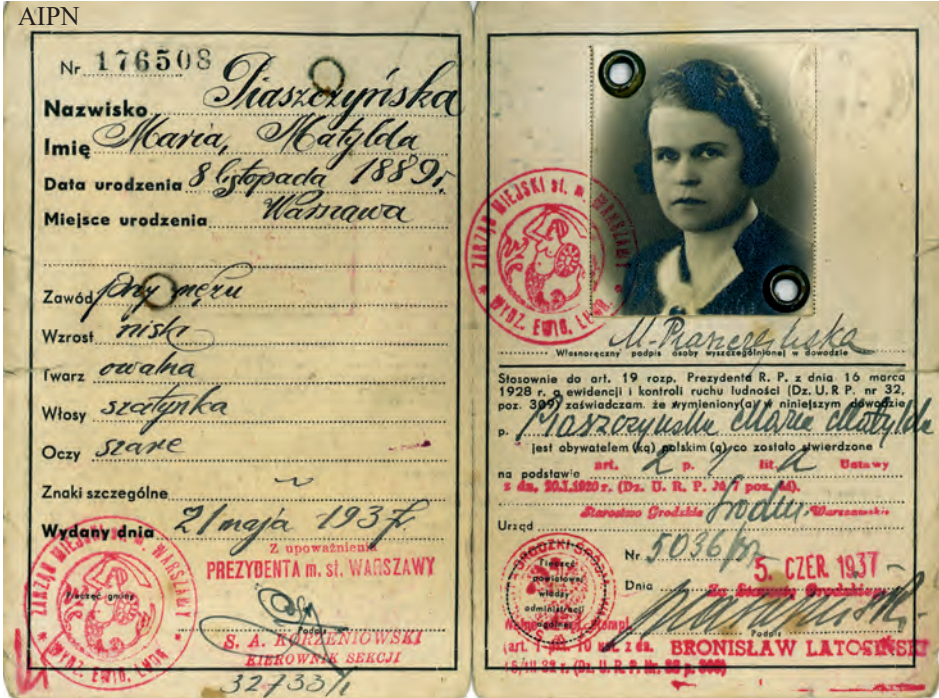 AIPN
Nr 176508
Nazwisko Piaszczyńska
Imię Maria, Matylda
Data urodzenia 8 listopada 1889 r.
Miejsce urodzenia Warszawa
Zawód przy mężu
Wzrost niski
Twarz owalna
Włosy szatynka
Oczy szare
Znaki szczególne ~
Wydany dnia 21 maja 1937 r.
Z upoważnienia
PREZYDENTA m. st. WARSZAWY
ZARZĄD MIEJSKI st. m. WARSZAWY * WYDZ. EWID. LUDN. *
Pieczęć gminy
Podpis
S. A. KORZENIOWSKI
KIEROWNIK SEKCJI
32733/
ZARZĄD MIEJSKI st. m. WARSZAWY * WYDZ. EWID. LUDN.
M. Piaszczyńska
Własnoręczny podpis osoby wyszczególnionej w dowodzie
Stosownie do art. 19 rozp. Prezydenta R. P. z dnia 16 marca
1928 r. o ewidencji i kontroli ruchu ludności (Dz. U. R P. nr 32,
poz. 309) zaświadczam, że wymieniony(a) w niniejszym dowodzie
p. Piaszczyńska Maria Matylda
jest obywatelem (ką) polskim (ą) co zostało stwierdzone
na podstawie art. 2 p. 1 lit. a Ustawy
z dn. 20.I.1920 r. (Dz. U. R. P. № 7 poz. 44).
Starostwo Grodzkie Śródm. Warszawskie
Urząd
Nr. 5036/
5. CZER 1937
Dnia Za Starostę Grodzkiego
Pieczęć
powiatowej
władzy
administracji
Podpis
BRONISŁAW LATOSIŃSKI